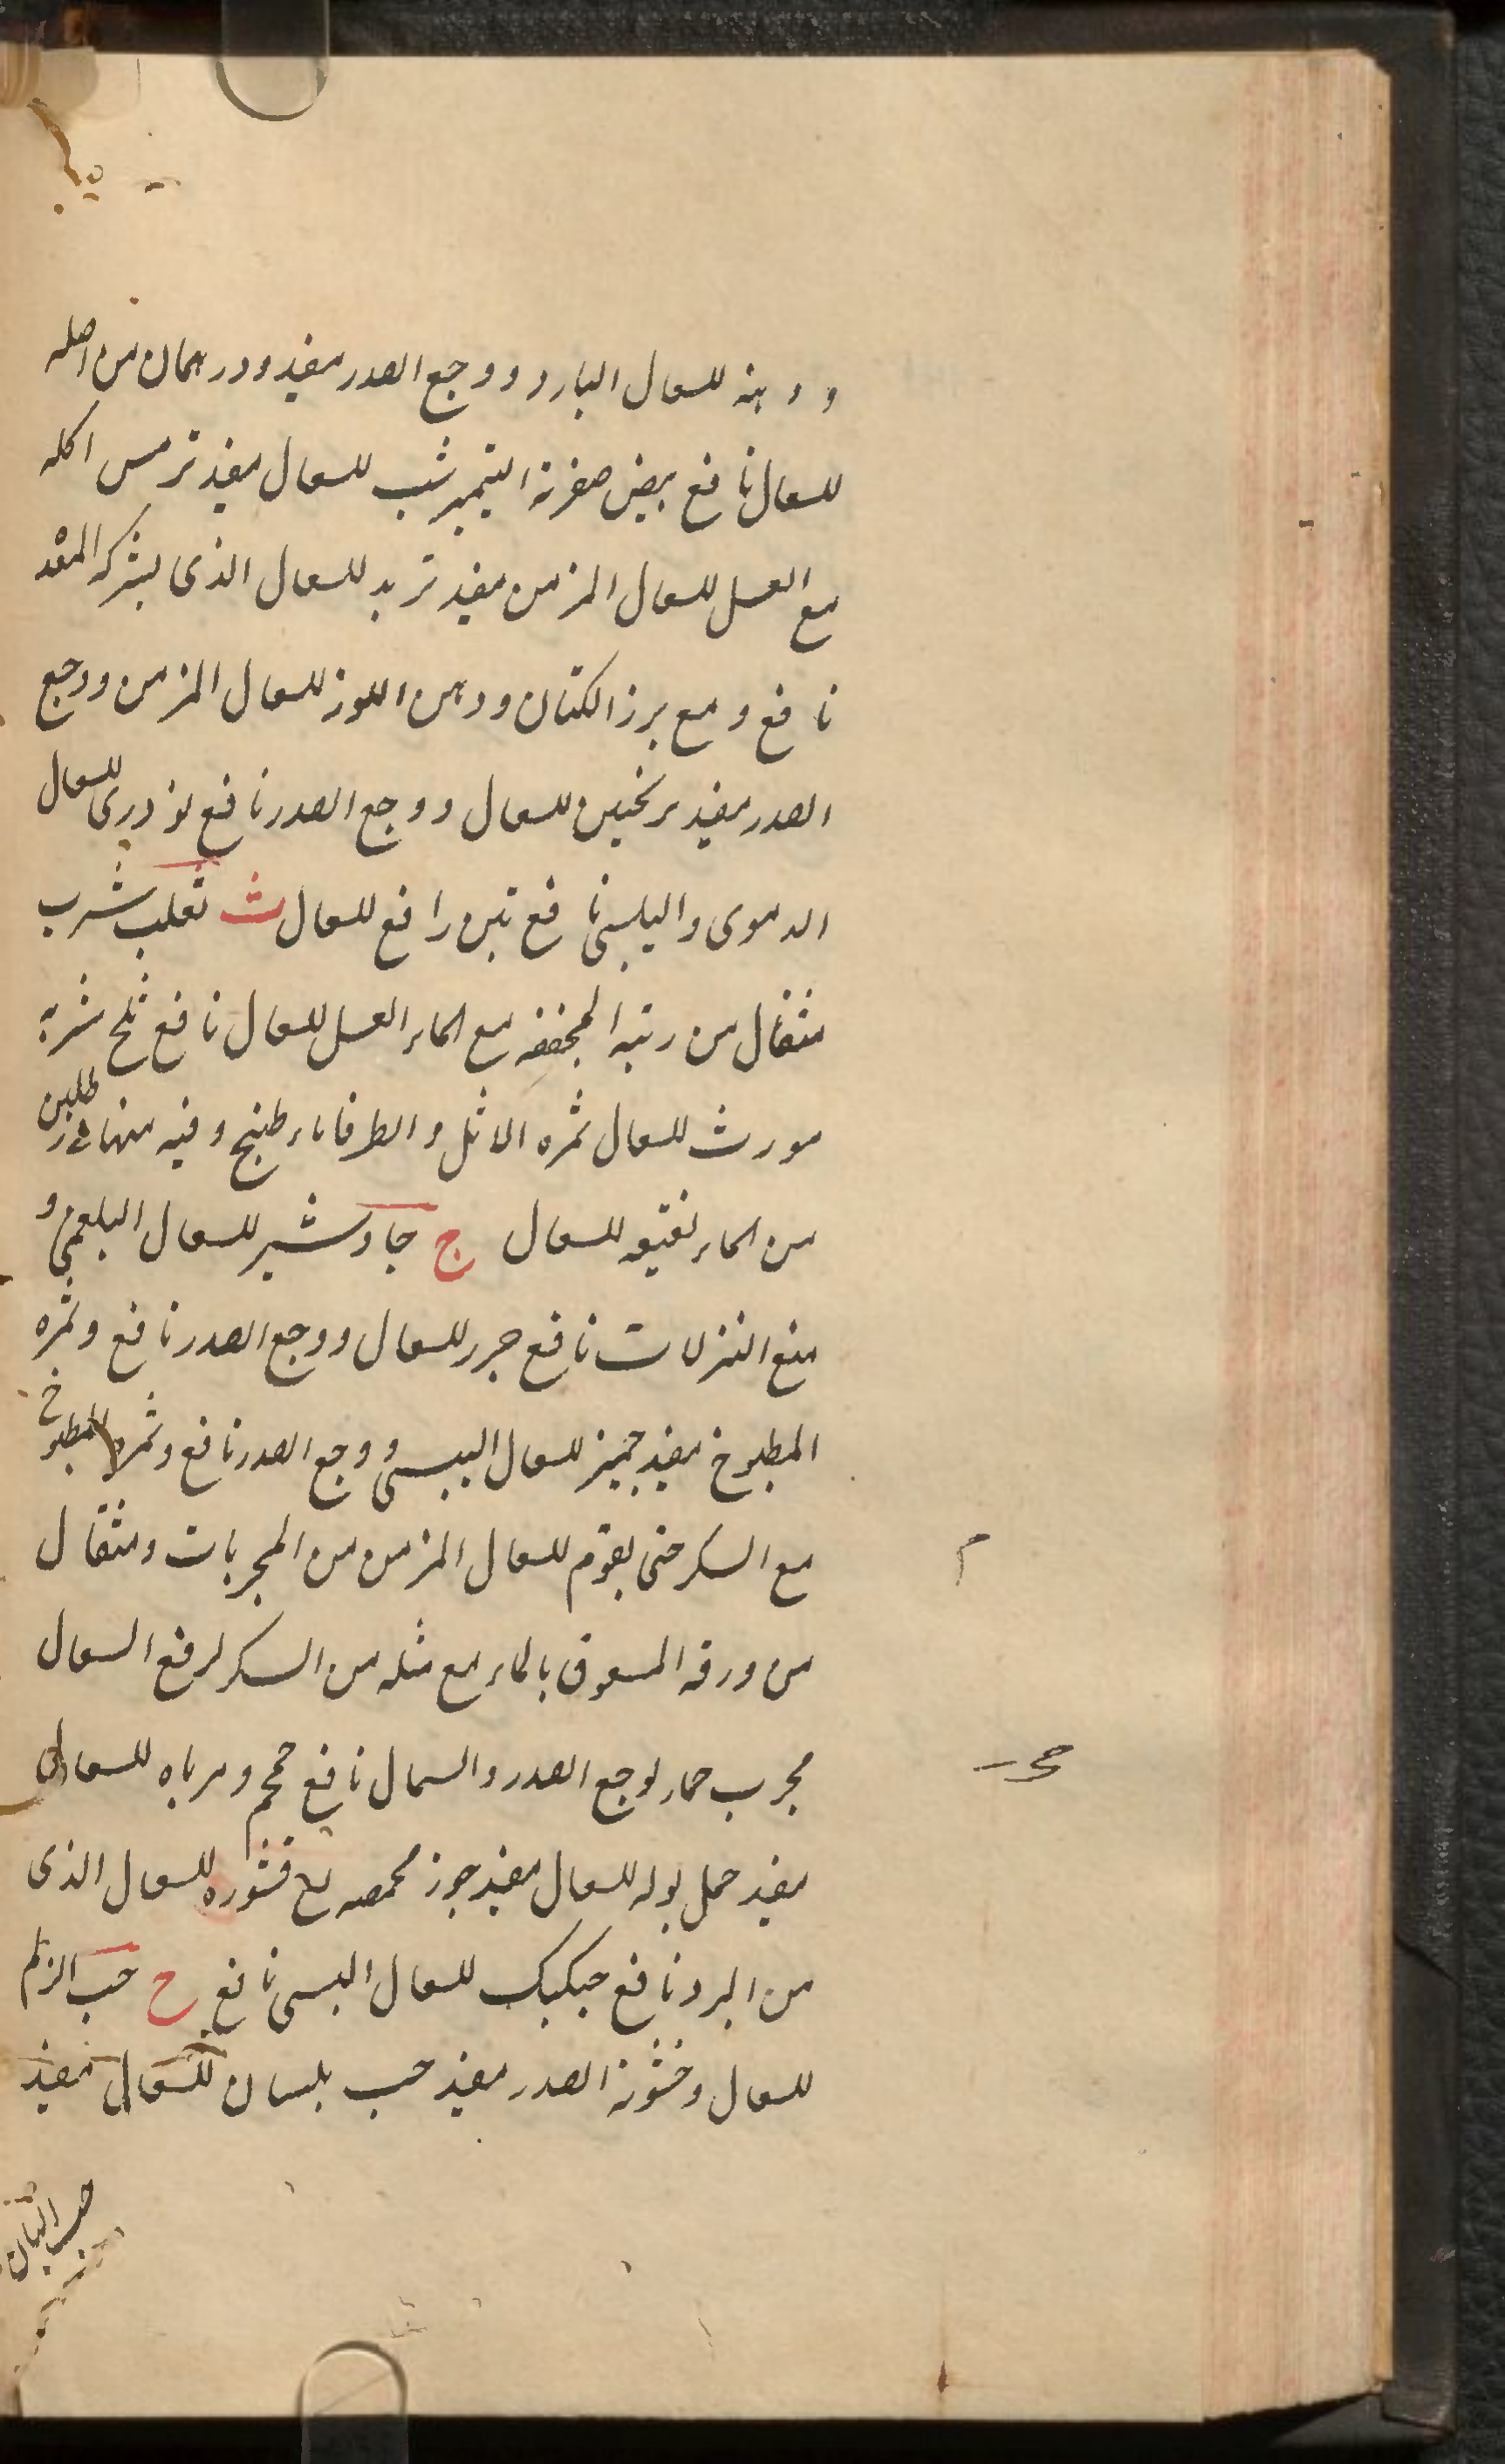 و دهنه للسعال البارد و وجع الصدر مفید و درهمان من اصله
للسعال نافع بیض صفرته النیمبرشت للسعال مفید ترمس اکله
مع العسل للسعال المزمن مفید تربد للسعال الذی یشرکه المعده
نافع و مع برز الکتان و دهن اللوز للسعال المزمن و وجع
الصدر مفید ترنجبین للسعال و وجع الصدر نافع توذری للسعال
الدموی و الیابسی نافع تین رافع للسعال ث ثعلب شرب
مثقال من ریته المجففه مع الماء العسل للسعال نافع ثلج شربه
مورث للسعال ثمره الاثل و الطرفاء طبخ و فیه منهما فی رطلین
من الماء نقیعه للسعال ج جاوشیر للسعال البلغمی و
منع النزلات نافع جزر للسعال و وجع الصدر نافع و ثمره
المطبوخ مفید جمیز للسعال الیبسی و وجع الصدر نافع و ثمره المطبوخ
مع السکر حتی یقوم للسعال المزمن من المجربات و مثقال
من ورقه المسحوق بالماء مع مثله من السکر لرفع السعال
مجرب حمار لوجع الصدر و السعال نافع و مرباه للسعال
مفید جمل بوله للسعال مفید جوز محمصه مع قشوره للسعال الذی
من البرد نافع للسعال الیبسی نافع ح حب الزلم
للسعال و خشونة الصدر مفید حب بلسان للسعال مفید
حب البان